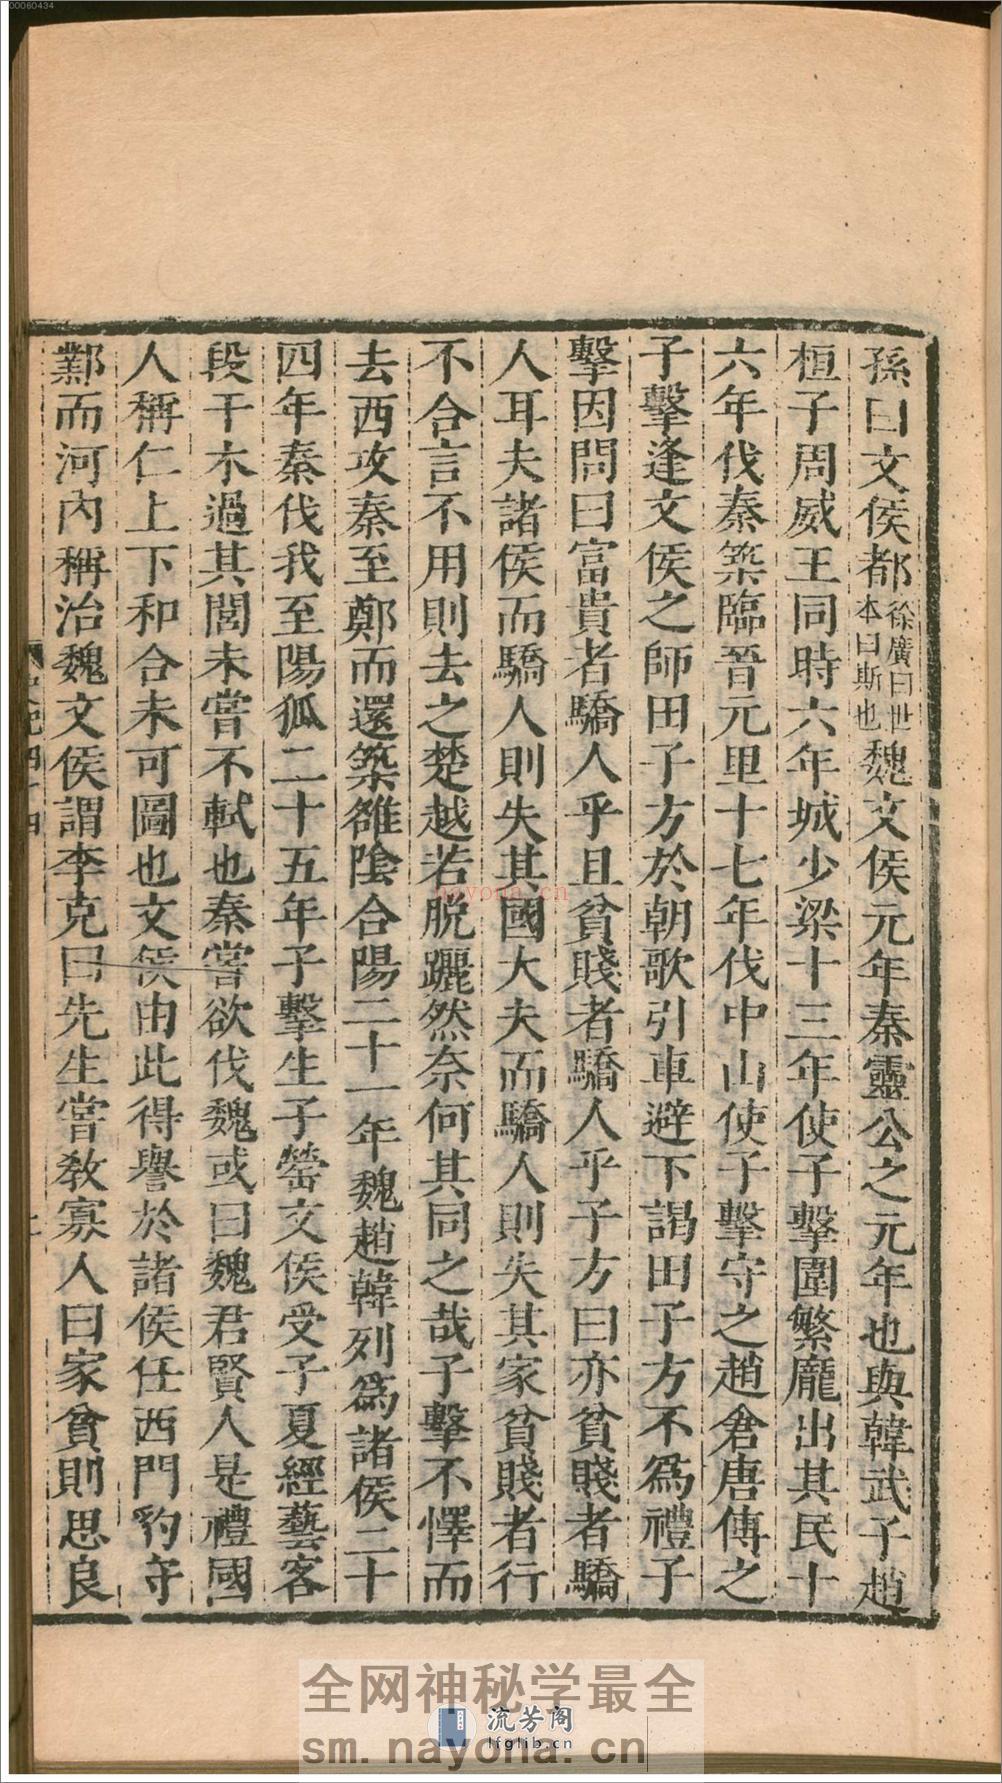 00060434
孫曰文侯都徐廣曰世本曰斯也魏文侯元年秦靈公之元年也與韓武子趙
桓子周威王同時六年城少梁十三年使子擊圍繁龐出其民十
六年伐秦築臨晉元里十七年伐中山使子擊守之趙倉唐傅之
子擊逢文侯之師田子方於朝歌引車避下謁田子方不爲禮子
擊因問曰富貴者驕人乎且貧賤者驕人乎子方曰亦貧賤者驕
人耳夫諸侯而驕人則失其國大夫而驕人則失其家貧賤者行
不合言不用則去之楚越若脫躧然奈何其同之哉子擊不懌而
去西攻秦至鄭而還築雒陰合陽二十一年魏趙韓列爲諸侯二十
四年秦伐我至陽狐二十五年子擊生子罃文侯受子夏經藝客
段干木過其閭未嘗不軾也秦嘗欲伐魏或曰魏君賢人是禮國
人稱仁上下和合未可圖也文侯由此得譽於諸侯任西門豹守
鄴而河內稱治魏文侯謂李克曰先生嘗教寡人曰家貧則思良
史記四十四
上
nayona.cn
全网神秘学最全
流芳阁
lfglib.cn
sm.nayona.cn